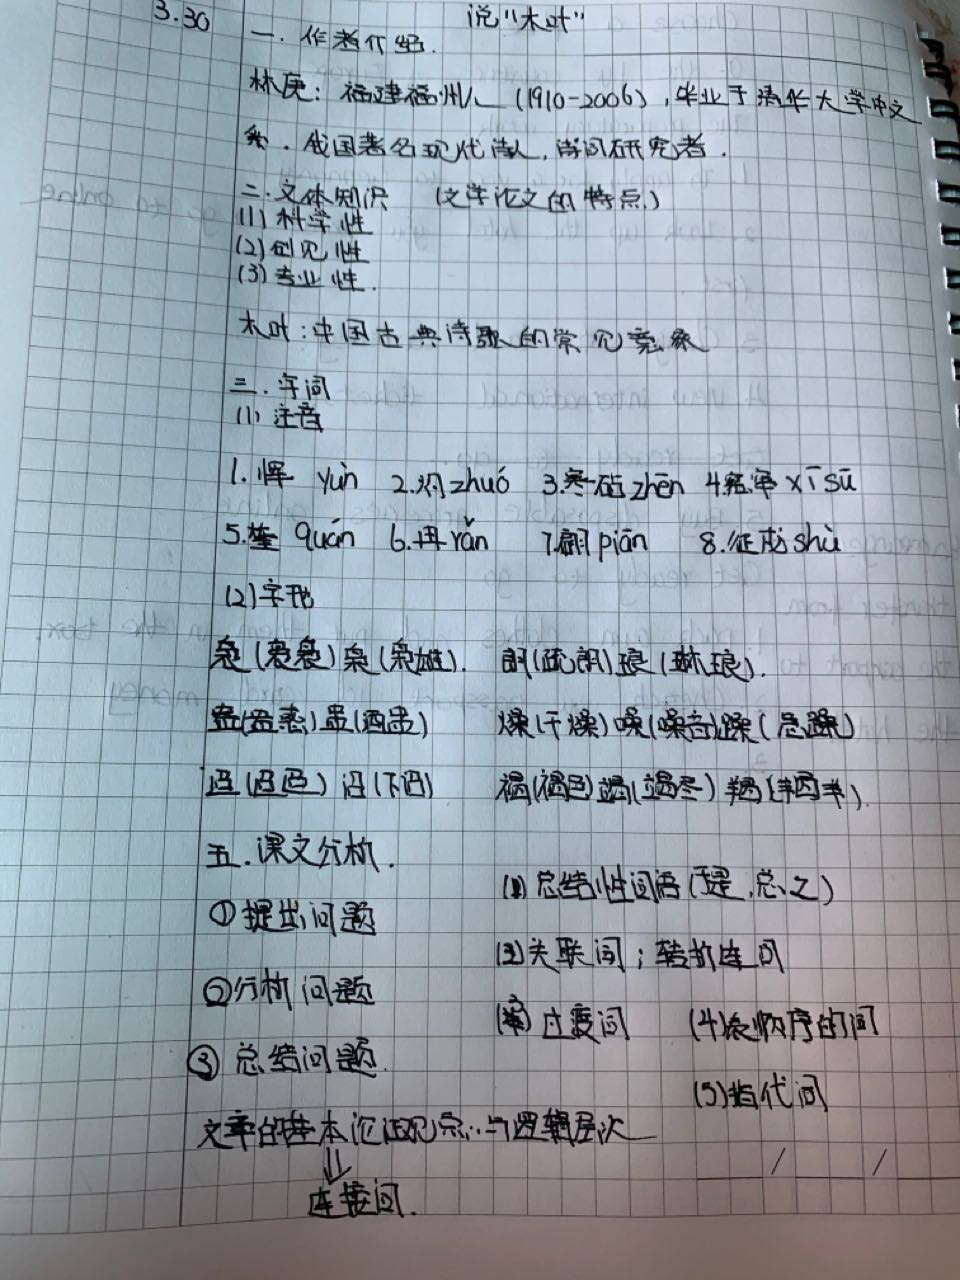 3.30
说"木叶"
一.作者介绍.
林庚:福建福州人(1910-2006),毕业于清华大学中文
系.我国著名现代诗人,诗词研究者.
二.文体知识 (文学论文的特点)
(1)科学性
(2)创见性
(3)专业性.
木叶:中国古典诗歌的常见意象
三.字词
(1)注音
1.恽 yùn 2.灼zhuó 3.寒砧zhēn 4.窸窣xīsū
5. quán 6.冉rǎn 7.翩piān 8.征戍shù
(2)字形
袅(袅袅)枭(枭雄). 朗(疏朗)琅(琳琅).
盅(盅惑)盅(酒盅) 燥(干燥)噪(噪音)躁(急躁)
迥(迥)泗(下泗) 褐(褐色)竭(竭尽)羯(羊).
五.课文分析.
①提出问题
②分析问题
③总结问题.
(1)总结性词语(于是,总之)
(2)关联词;转折连词
(3)过度词 (4)表顺序的词
(5)指代词
文章的基本论证观点与逻辑层次
⇓
连接词.